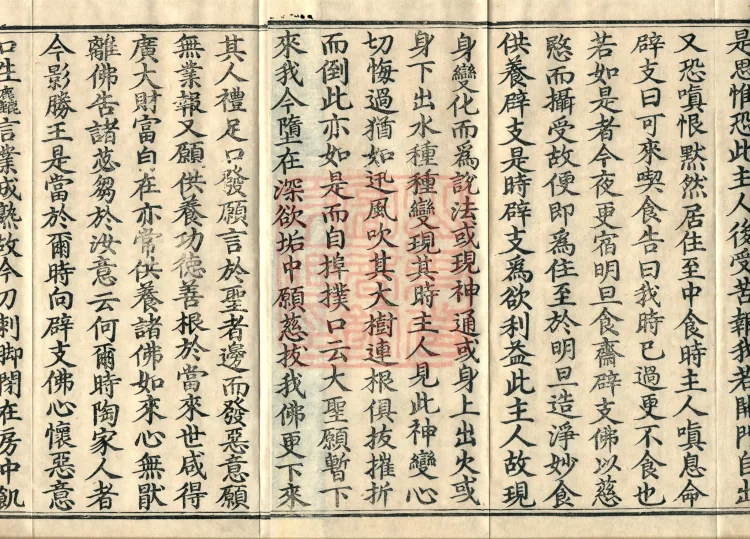 是思惟恐此主人後受苦報我若開門自出
又恐嗔恨默然居住至中食時主人嗔息命
辟支曰可來喫食告曰我時已過更不食也
若如是者今夜更宿明旦食齋辟支佛以慈
愍而攝受故便即為住至於明旦造淨妙食
供養辟支是時辟支為欲利益此主人故現
身變化而為說法或現神通或身上出火或
身下出水種種變現其時主人見此神變心
切悔過猶如迅風吹其大樹連根俱拔摧折
而倒此亦如是而自掉撲口云大聖願暫下
來我今墮在深欲垢中願慈拔我佛更下來
其人禮足口發願言於聖者邊而發惡意願
無業報又願供養功德善根於當來世咸得
廣大財富自在亦常供養諸佛如來心無猒
離佛告諸苾芻於汝意云何爾時陶家人者
今影勝王是當於爾時向辟支佛心懷惡意
口生麤言業成熟故今刀刺脚閉在房中飢